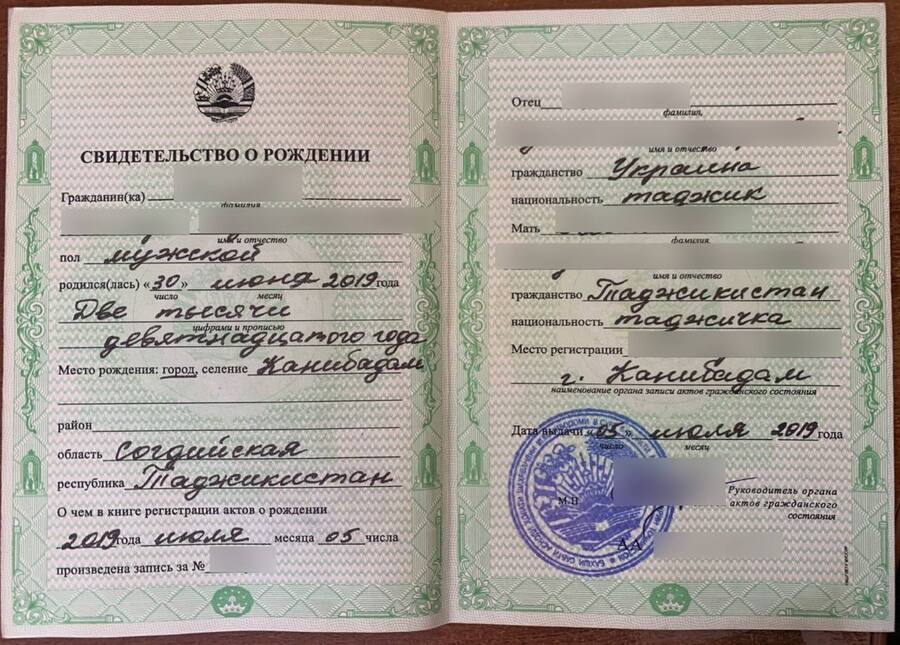 СВИДЕТЕЛЬСТВО О РОЖДЕНИИ
Гражданин(ка)
фамилия
имя и отчество
пол мужской
родился(лась) «30» июня 2019 года
число месяц
Две тысячи
цифрами и прописью
девятнадцатого года
Место рождения: город, селение Канибадам
район
область Согдийская
республика Таджикистан
О чем в книге регистрации актов о рождении
2019 года июля месяца 05 числа
произведена запись за №
Отец
фамилия,
имя и отчество
гражданство Украина
национальность таджик
Мать
фамилия,
имя и отчество
гражданство Таджикистан
национальность таджичка
Место регистрации
г. Канибадам
наименование органа записи актов гражданского состояния
Дата выдачи «05» июля 2019 года
число месяц
М.П.
Руководитель органа
актов гражданского
состояния